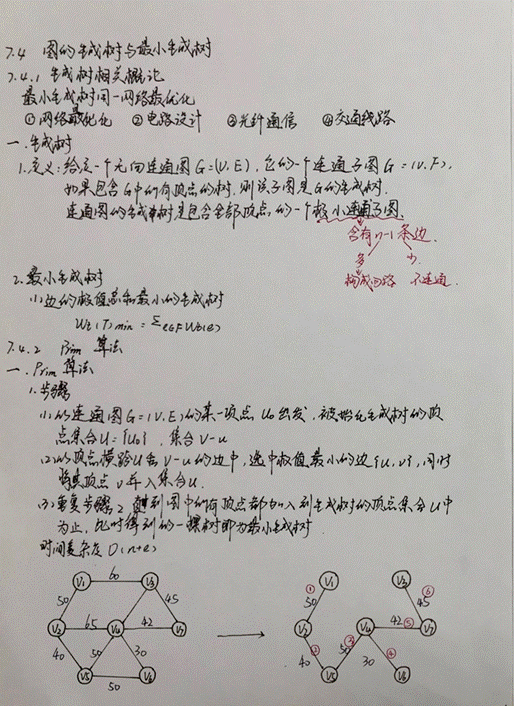 7.4 图的生成树与最小生成树
7.4.1 生成树相关概论
最小生成树用一网络最优化
①网络最优化 ②电路设计 ③光纤通信 ④交通线路
一.生成树
1.定义:给定一个无向连通图G=(V.E),它的一个连通子图G=(V.F),
如果包含G中所有顶点的树.则该子图是G的生成树.
连通图的生成树是包含全部顶点,的一个极小连通子图.
含有n-1条边.
多 少.
构成回路 不连通.
2.最小生成树
(1)边的权值总和最小的生成树
Wt(T)min = Σe∈F Wt(e)
7.4.2 Prim 算法
一.Prim算法
1.步骤
(1)以连通图G=(V.E)的某一顶点U0出发.被始化生成树的顶
点集合U={U0},集合V-u
(2)以顶点横跨U和V-u的边中,选中权值最小的边{u,v},同时
将顶点v并入集合U.
(3)重复步骤2 直到图中所有顶点都加入到生成树的顶点集合U中
为止,此时得到的一棵树即为最小生成树.
时间复杂度 O(n+e)
V1 60 V3 ① V1 V3 ⑥
50 45 50 45
V2 65 V4 42 V7 V2 V4 42 ⑤ V7
40 50 30 ② 40 50 ③ 30 ④
V5 50 V6 V5 V6